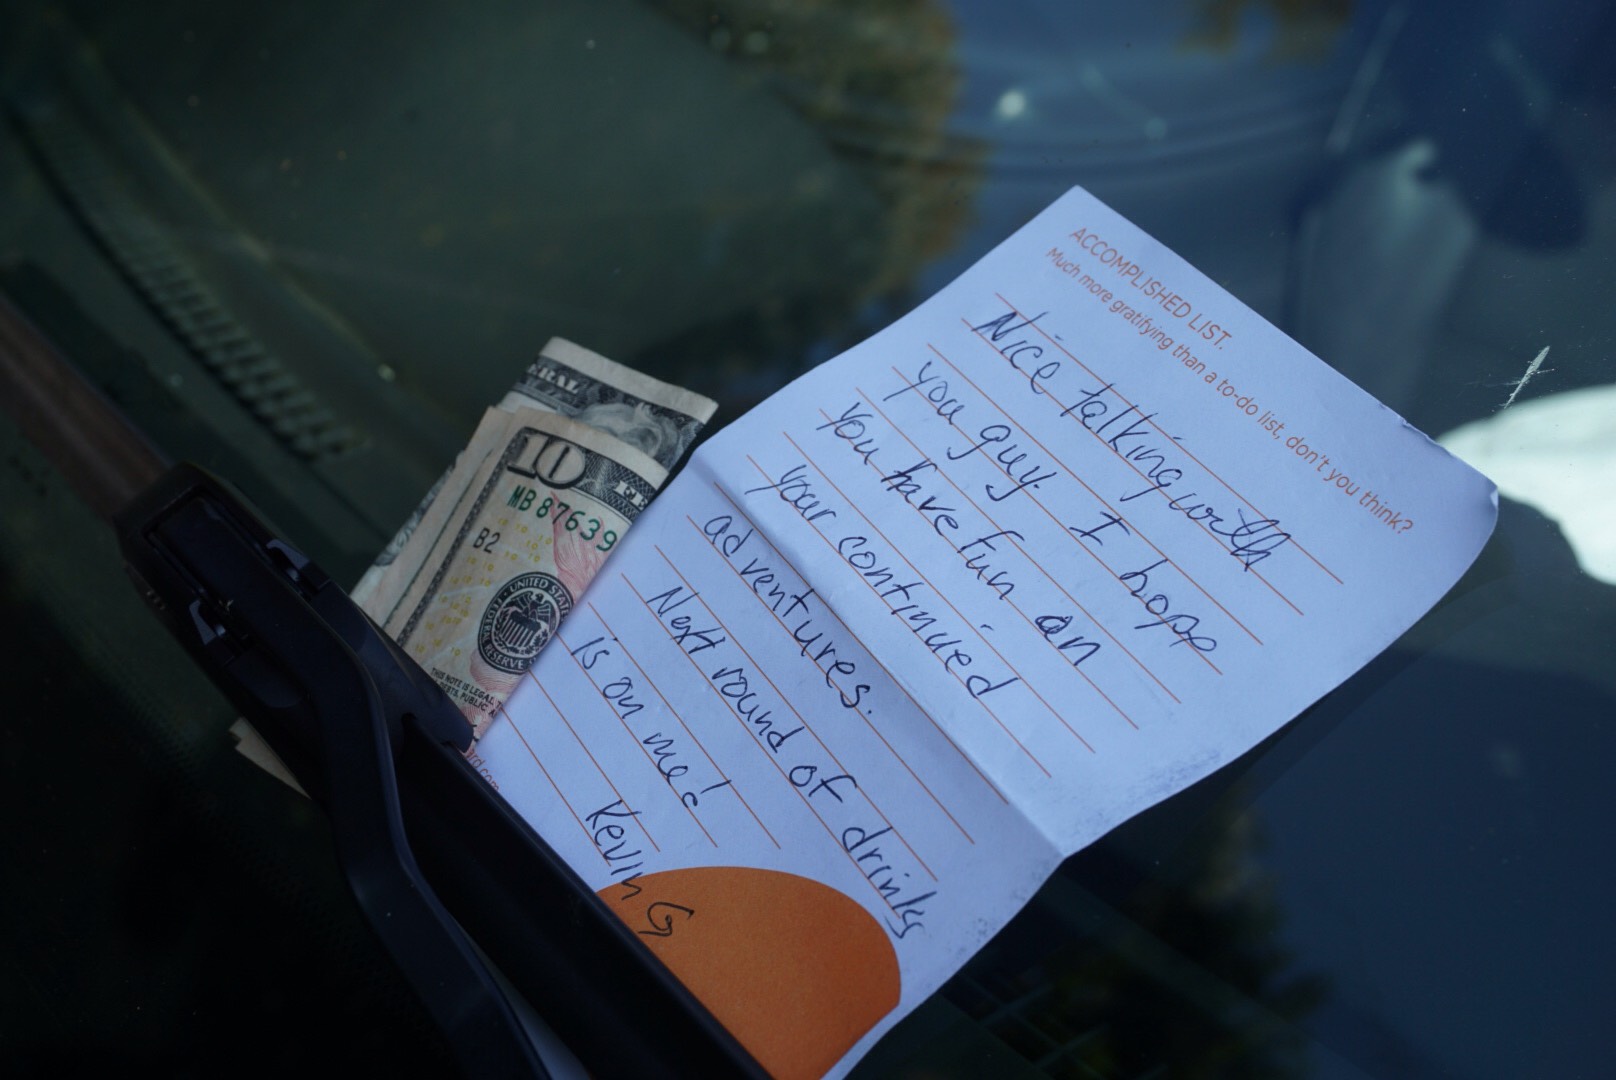 ACCOMPLISHED LIST.
Much more gratifying than a to-do list, don't you think?
Nice talking with
you guy. I hope
you have fun on
your continued
adventures.
Next round of drinks
is on me!
Kevin G
ERAL
10
FE
MB 87639
B2
UNITED STATE
RESERVE
THIS NOTE IS LEGAL T
DEBTS, PUBLIC A
rd.com